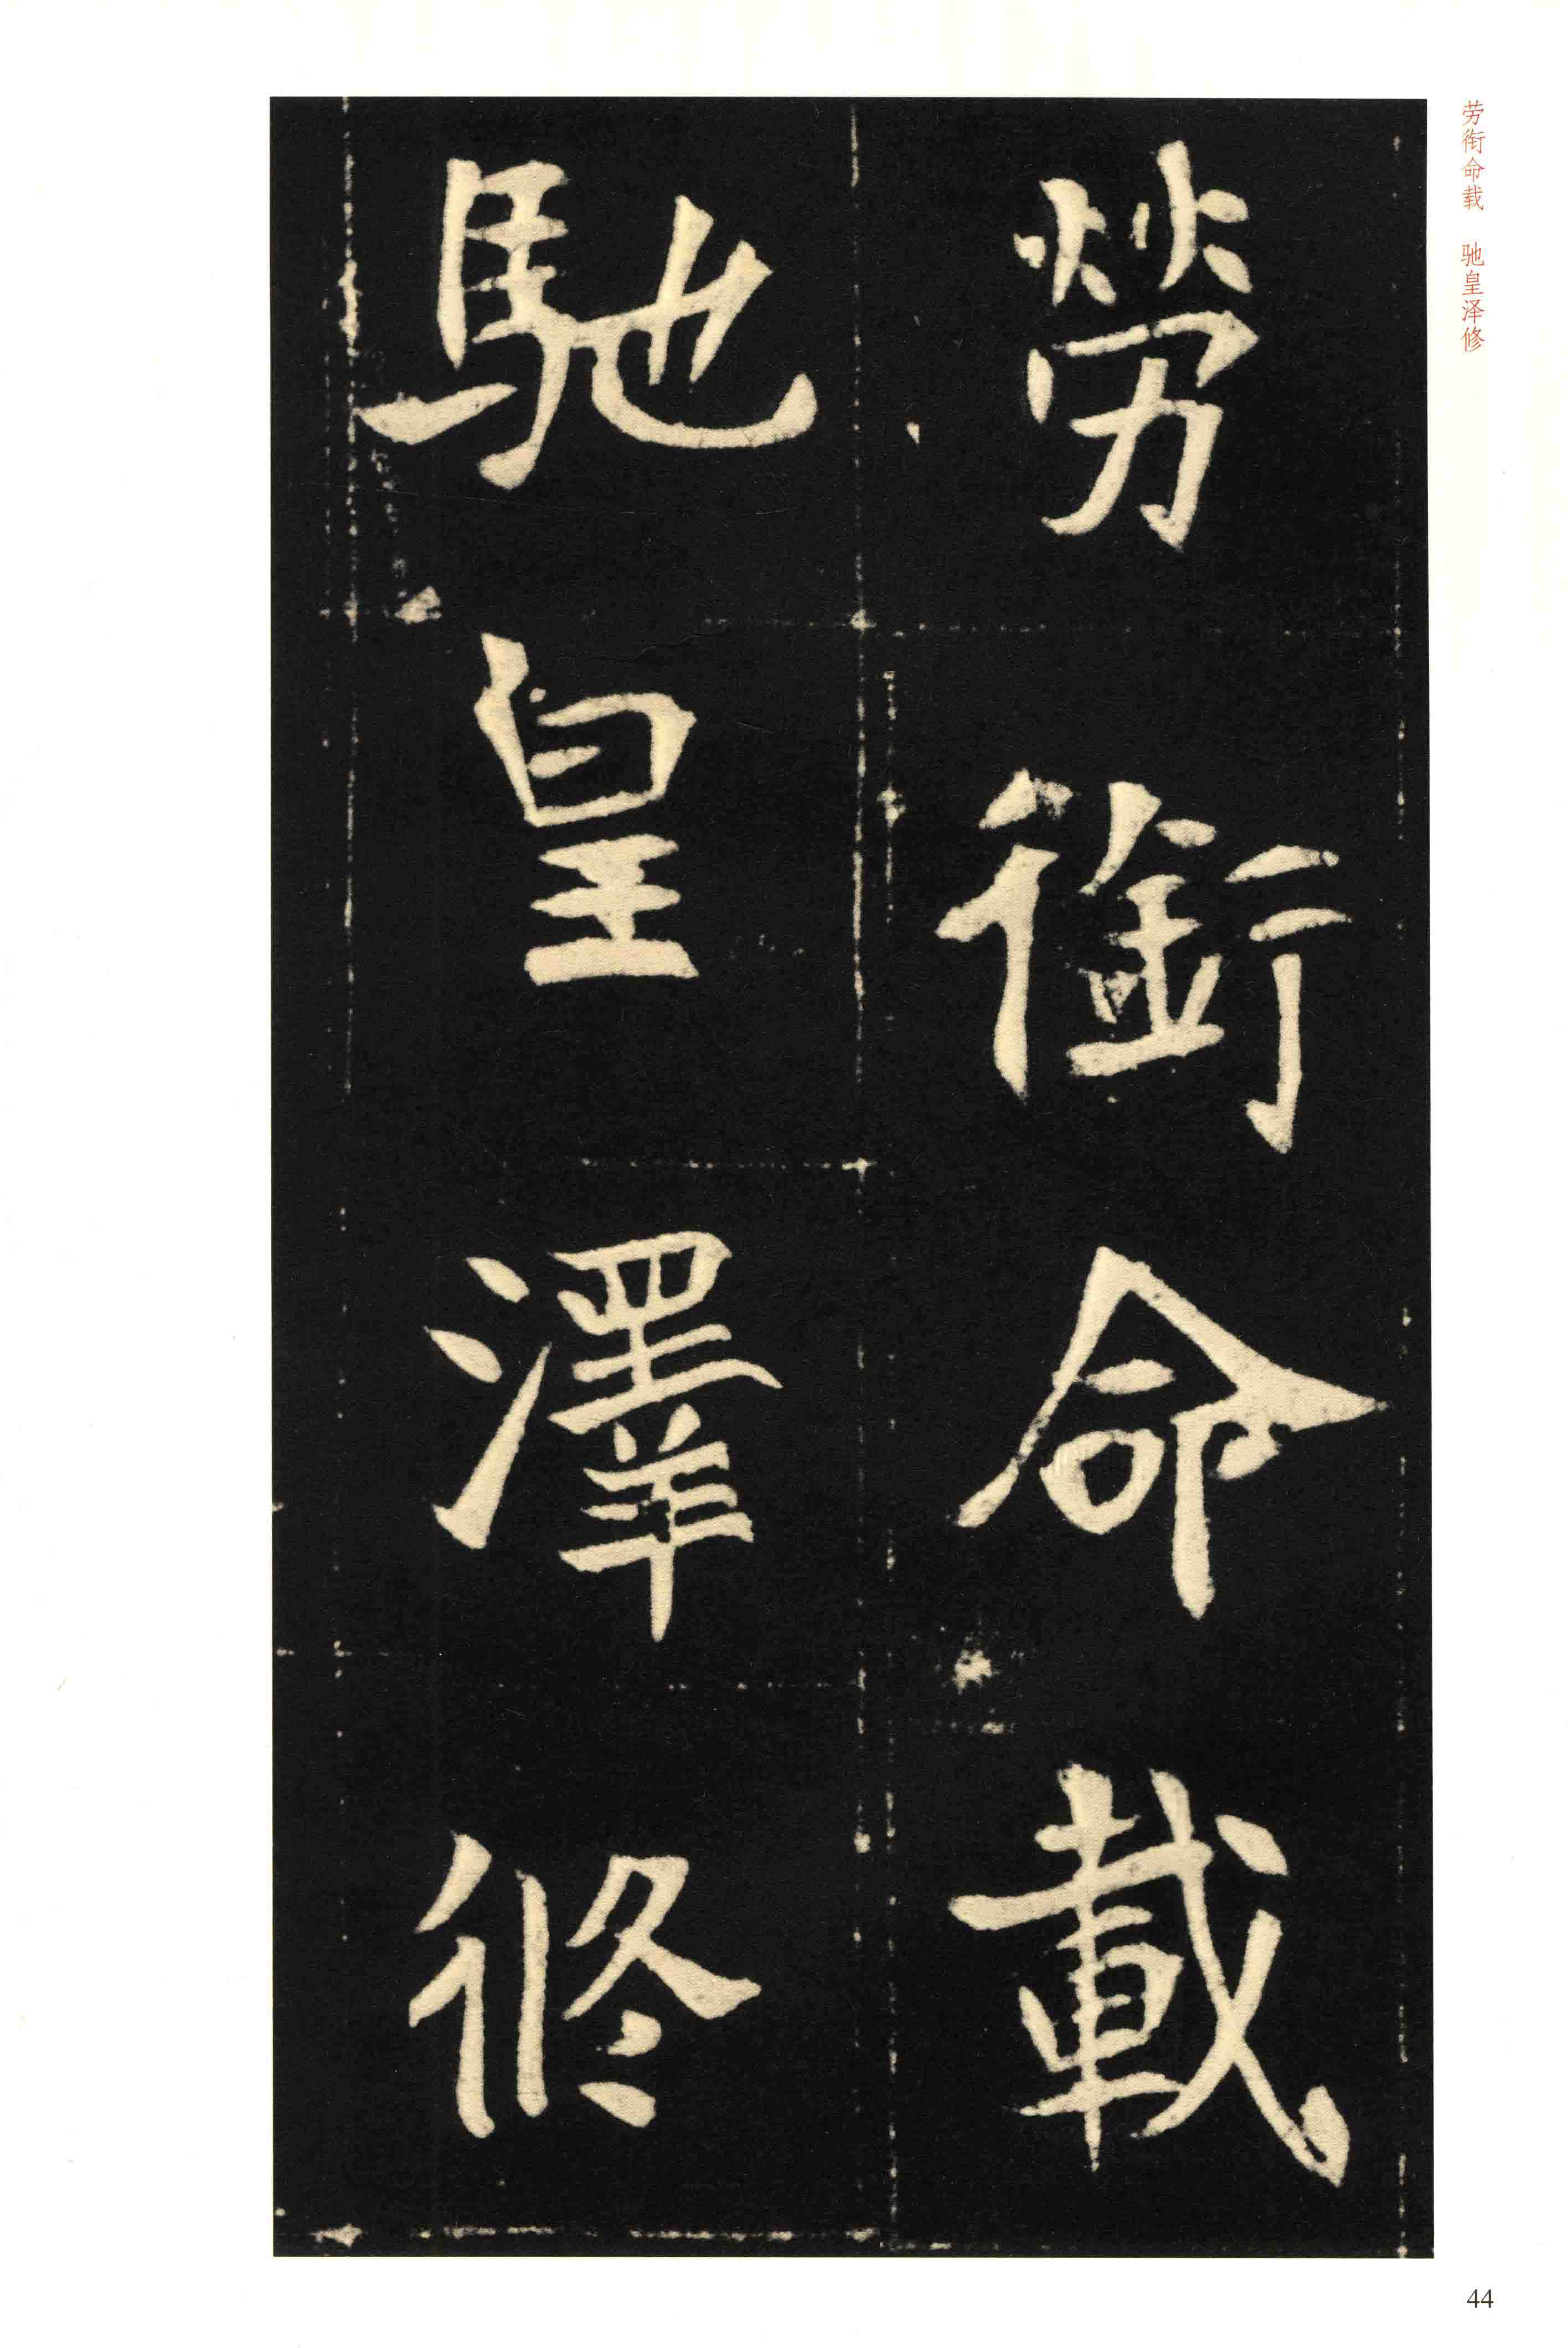 劳衔命载　驰皇泽修
勞銜命載
馳皇澤脩
44